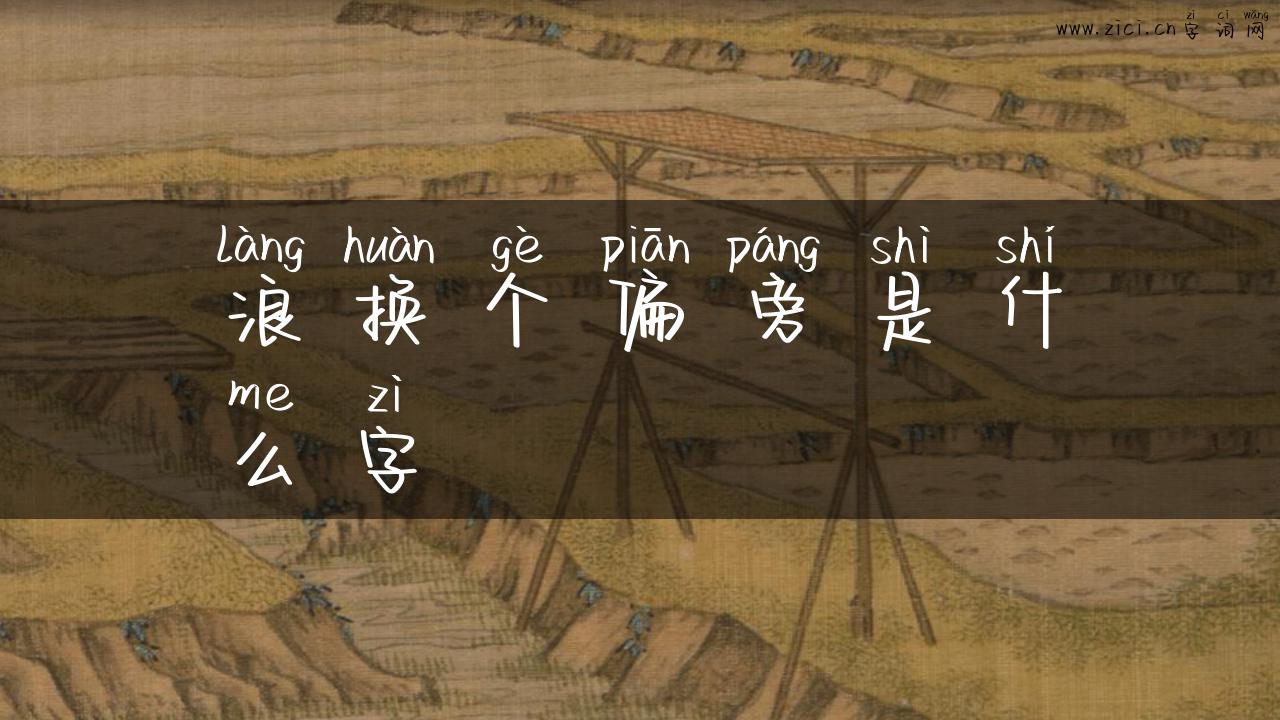 zì cí wǎng
www.zici.cn 字 词 网
làng huàn gè piān páng shì shí
浪 换 个 偏 旁 是 什
me zì
么 字